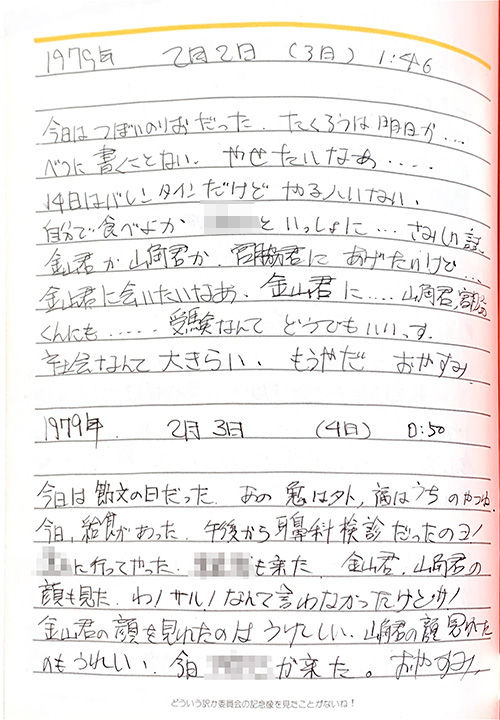 1979年 2月2日 (3日) 1:46
今日はつぼいのりおだった. たくろうは明日か...
べつに書くことない. やせたいなあ.....
14日はバレンタインだけど やる人いない.
自分で食べよか といっしょに... さみしい話.
金山君か山角君か. 宮脇君にあげたいけど...
金山君に会いたいなあ. 金山君に.... 山角君,宮脇
くんにも..... 受験なんて どうでもいいっす.
社会なんて大きらい. もうやだ. おやすみ.
1979年. 2月3日 (4日) 0:50
今日は節文の日だった. あの 鬼は外, 福はうちのやつね.
今日,給食があった. 午後から耳鼻科検診だったのヨ!
に行ってやった. も来た. 金山君.山角君の
顔も見た. わ!サル!なんて言わなかったけどサ!
金山君の顔を見れたのは うれしい. 山角君の顔 見れた
のもうれしい. 今日 が来た。おやすみ.
どういう訳か委員会の記念像を見たことがないね!